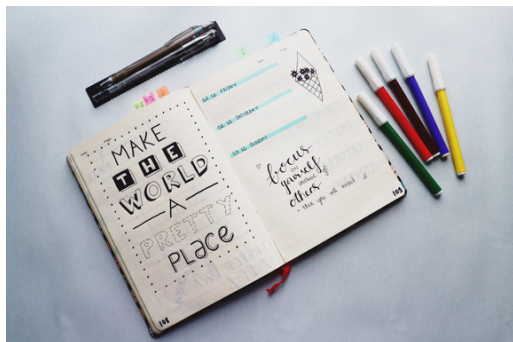 MAKE
THE
WORLD
A
PRETTY
PLACE
108
Friday
Saturday
Sunday
focus
on
yourself
instead of
others
that you will
109